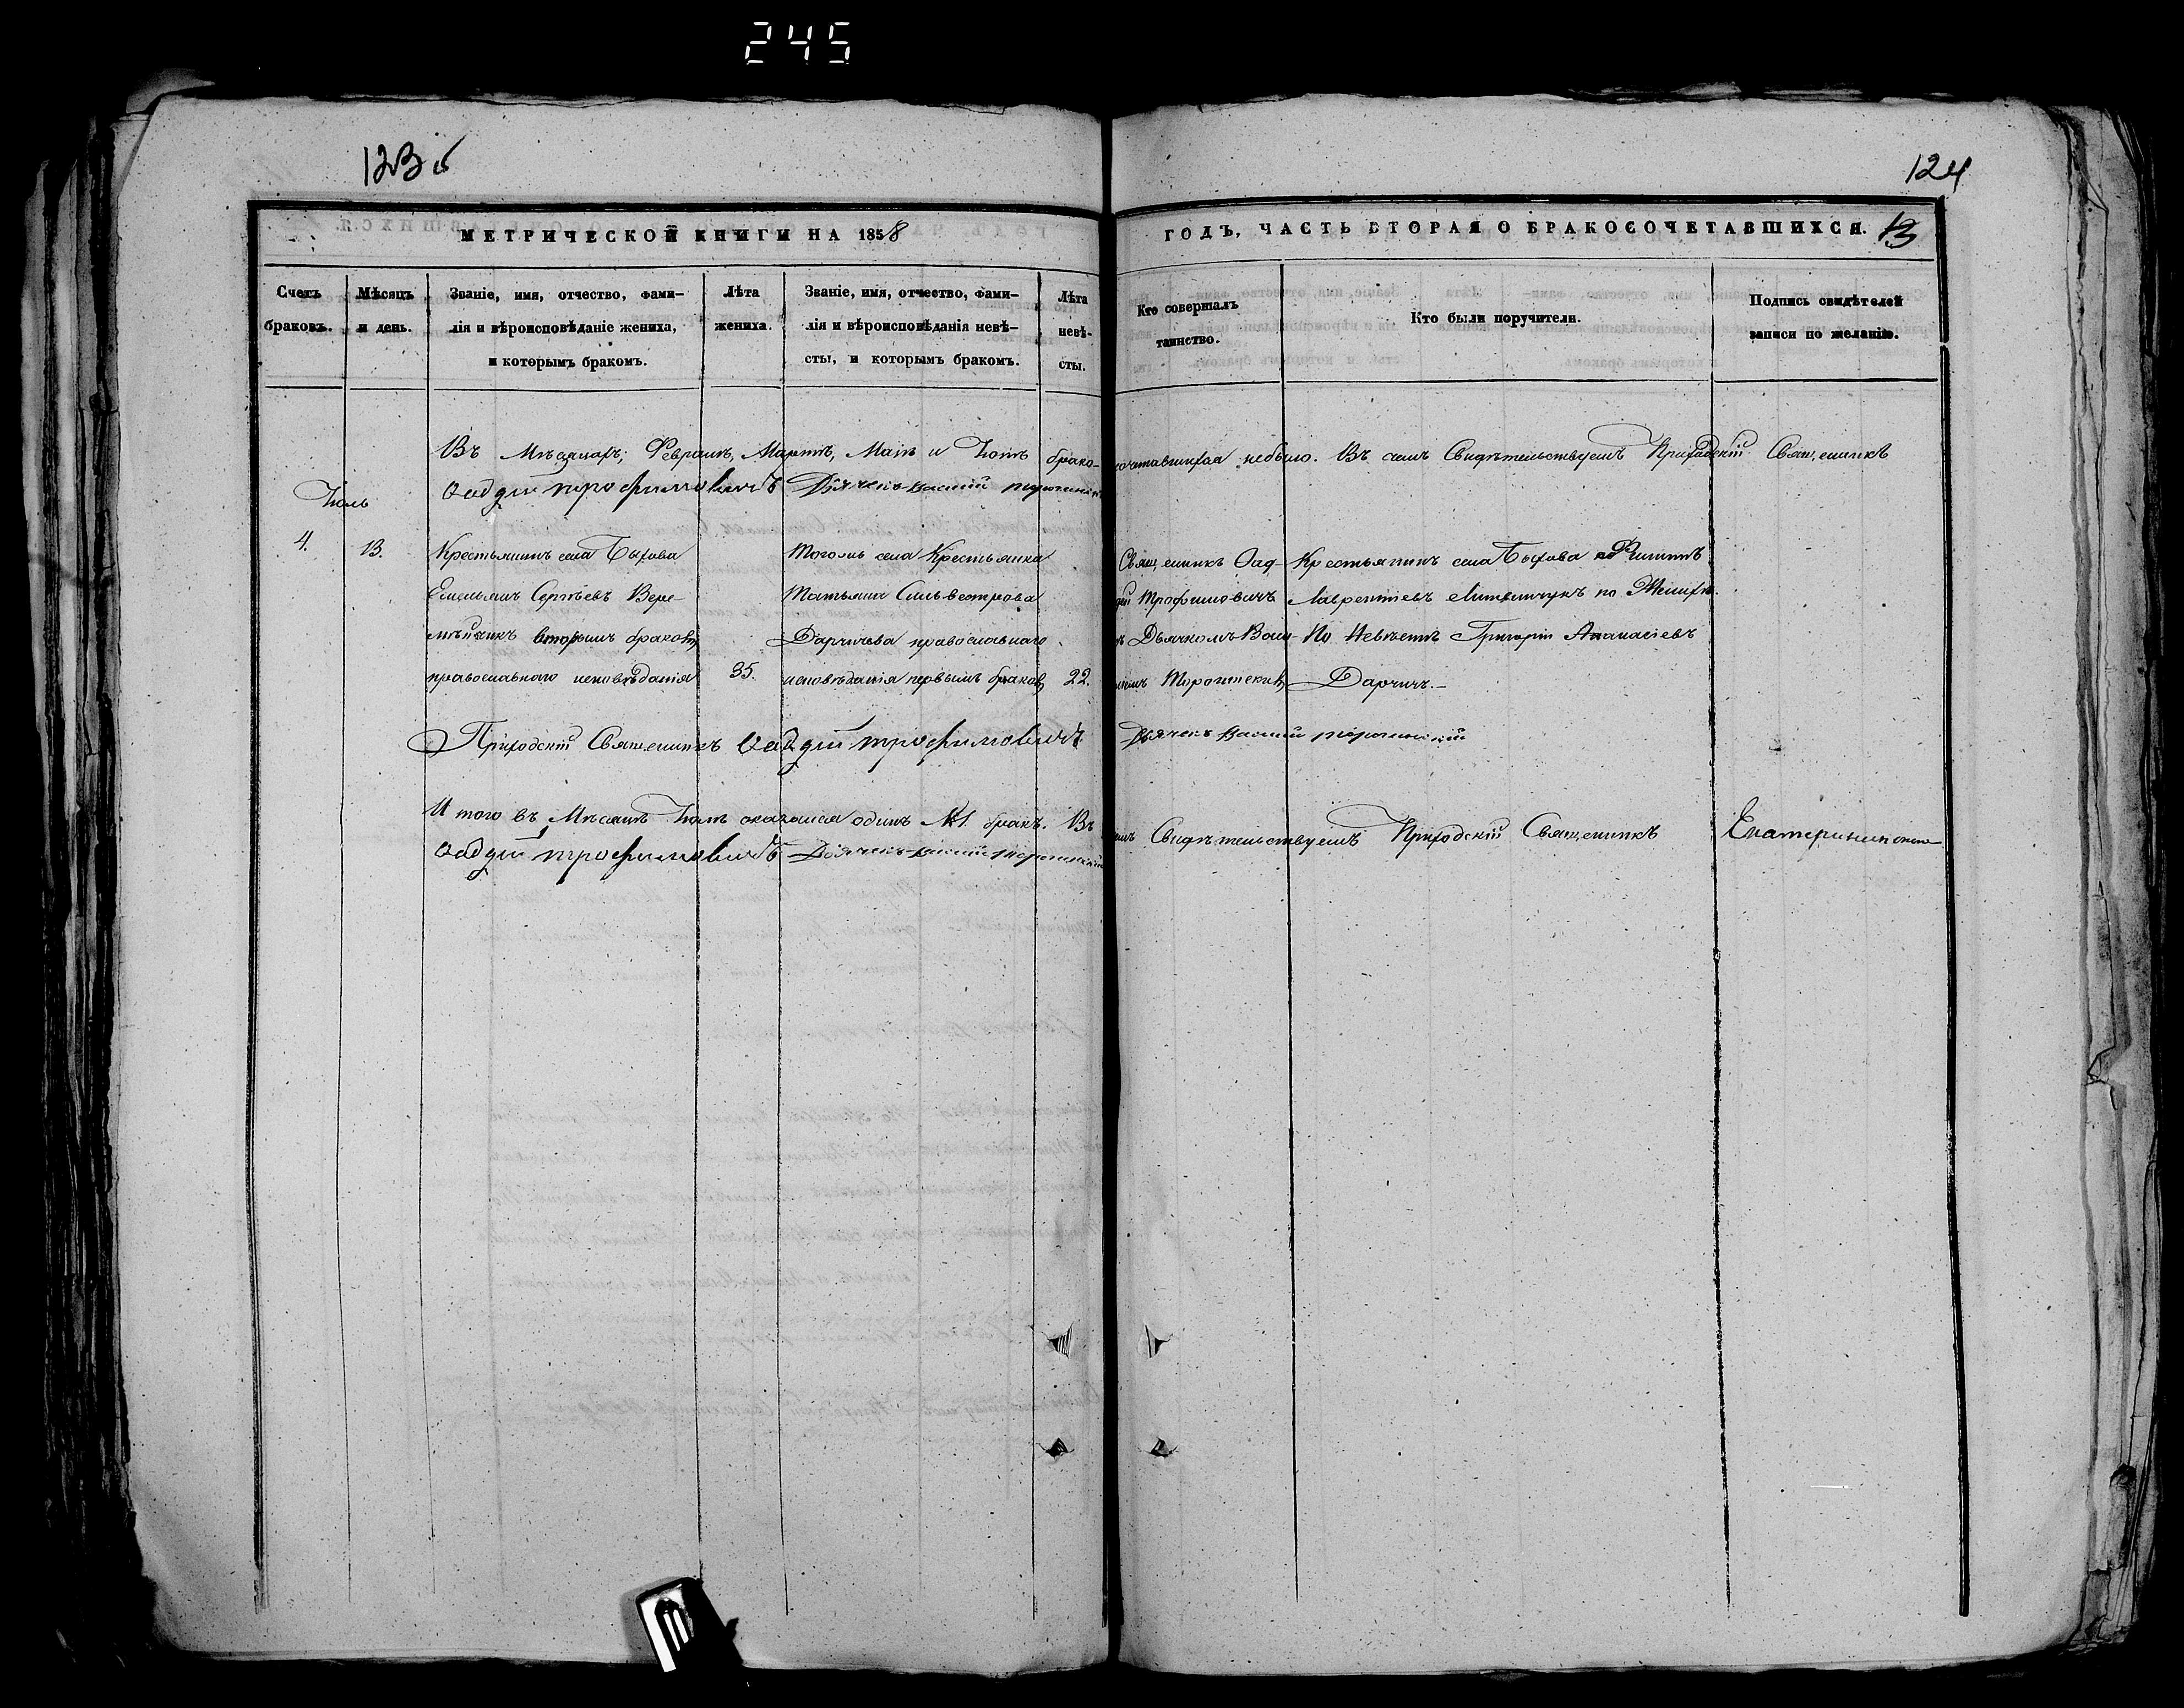 245
123 б
124
МЕТРИЧЕСКОЙ КНИГИ НА 1858
ГОДЪ, ЧАСТЬ ВТОРАЯ О БРАКОСОЧЕТАВШИХСЯ. 13
Счетъ
браковъ.
Мѣсяцъ
и день.
Званіе, имя, отчество, фами-
лія и вѣроисповѣданіе жениха,
и которымъ бракомъ.
Лѣта
жениха.
Званіе, имя, отчество, фами-
лія и вѣроисповѣданія невѣ-
сты, и которымъ бракомъ.
Лѣта
невѣ-
сты.
Кто совершалъ
таинство.
Кто были поручители.
Подпись свидѣтелей
записи по желанію.
Въ Мѣсяцахъ; Февралѣ, Мартѣ, Маіѣ и Іюнѣ брако-
сочетавшихся небыло. Въ семъ Свидѣтельствуемъ Приходскій Священникъ
Фаддей Трофимовичъ Дьячекъ
Іюль
4.
13.
Крестьянинъ села Быхова
Емельянъ Сергѣевъ Вере-
мѣйчикъ вторымъ бракомъ
православнаго исповѣданія
35.
Тогожъ села Крестьянка
Татьяна Сильвестрова
Дарчичева православнаго
исповѣданія первымъ бракомъ
22.
Священникъ Фад-
дей Трофимовичъ
Дьячкомъ Васи-
Крестьянинъ села Быхова Филиппъ
Лаврентіевъ Литвинчукъ по Женихѣ.
По Невѣстѣ Григорій Аѳанасіевъ
Дарчичъ.
Приходскій Священникъ Фаддей Трофимовичъ
Дьячекъ
И того въ Мѣсяцѣ Іюлѣ оказался одинъ №1. бракъ. Въ
семъ Свидѣтельствуемъ Приходскій Священникъ
Фаддей Трофимовичъ Дьячекъ